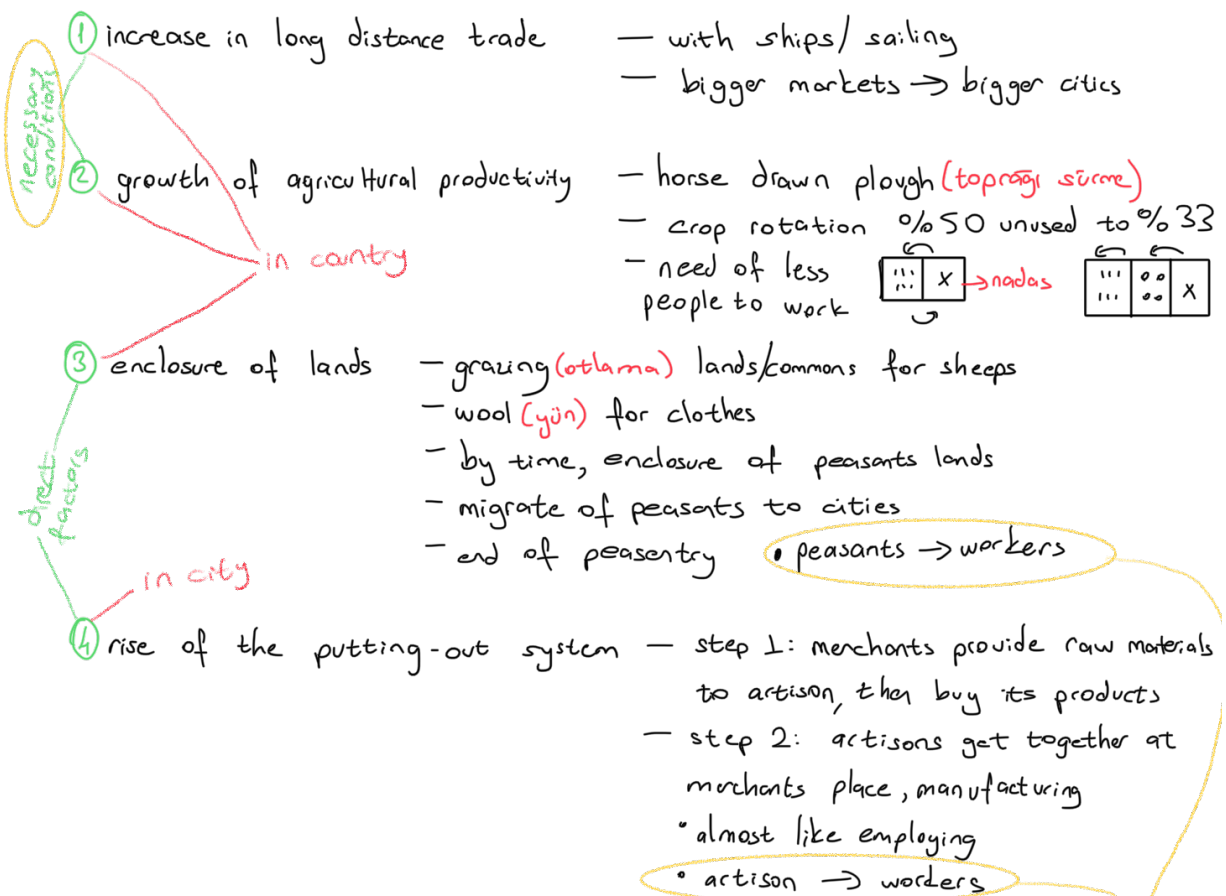 ① increase in long distance trade — with ships/ sailing
— bigger markets → bigger cities
necessary conditions
② growth of agricultural productivity — horse drawn plough (toprağı sürme)
— crop rotation %50 unused to %33
in country
— need of less
people to work
x → nadas
x
③ enclosure of lands — grazing (otlama) lands/commons for sheeps
— wool (yün) for clothes
— by time, enclosure of peasants lands
direct factors
— migrate of peasants to cities
— end of peasentry • peasants → workers
in city
④ rise of the putting-out system — step 1: merchants provide raw materials
to artison, then buy its products
— step 2: artisons get together at
merchants place, manufacturing
• almost like employing
• artison → workers